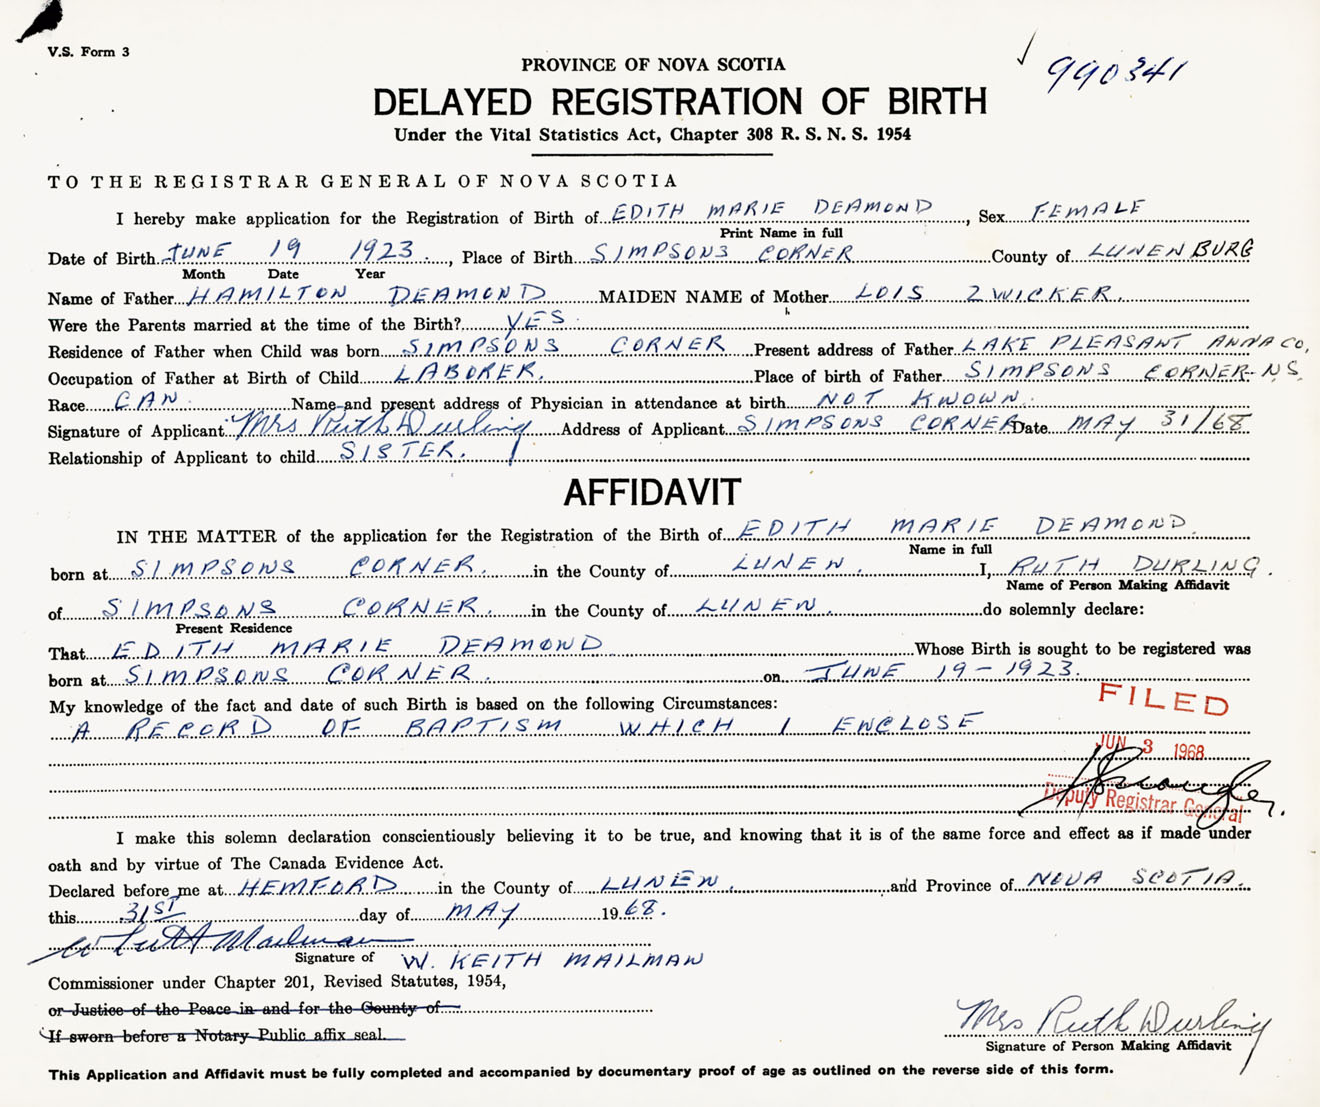 V.S. Form 3
990341
PROVINCE OF NOVA SCOTIA
DELAYED REGISTRATION OF BIRTH
Under the Vital Statistics Act, Chapter 308 R. S. N. S. 1954
TO THE REGISTRAR GENERAL OF NOVA SCOTIA
I hereby make application for the Registration of Birth of EDITH MARIE DEAMOND, Sex FEMALE
Print Name in full
Date of Birth JUNE 19 1923, Place of Birth SIMPSONS CORNER County of LUNENBURG
Month Date Year
Name of Father HAMILTON DEAMOND MAIDEN NAME of Mother LOIS ZWICKER.
Were the Parents married at the time of the Birth? YES.
Residence of Father when Child was born SIMPSONS CORNER Present address of Father LAKE PLEASANT ANNA CO,
Occupation of Father at Birth of Child LABORER. Place of birth of Father SIMPSONS CORNER-N.S.
Race CAN. Name and present address of Physician in attendance at birth NOT KWOWN.
Signature of Applicant Mrs Ruth Durling Address of Applicant SIMPSONS CORNER Date MAY 31/68
Relationship of Applicant to child SISTER.
AFFIDAVIT
IN THE MATTER of the application for the Registration of the Birth of EDITH MARIE DEAMOND.
Name in full
born at SIMPSONS CORNER. in the County of LUNEN. I, RUTH DURLING.
Name of Person Making Affidavit
of SIMPSONS CORNER. in the County of LUNEN. do solemnly declare:
Present Residence
That EDITH MARIE DEAMOND Whose Birth is sought to be registered was
born at SIMPSONS CORNER. on JUNE 19-1923.
My knowledge of the fact and date of such Birth is based on the following Circumstances:
A RECORD OF BAPTISM WHICH I ENCLOSE
FILED
JUN 3 1968
Deputy Registrar General
I make this solemn declaration conscientiously believing it to be true, and knowing that it is of the same force and effect as if made under
oath and by virtue of The Canada Evidence Act.
Declared before me at HEMFORD in the County of LUNEN. and Province of NOVA SCOTIA.
this 31ST day of MAY 1968.
W Keith Mailman
Signature of W. KEITH MAILMAN
Commissioner under Chapter 201, Revised Statutes, 1954,
or Justice of the Peace in and for the County of
If sworn before a Notary Public affix seal.
Mrs Ruth Durling
Signature of Person Making Affidavit
This Application and Affidavit must be fully completed and accompanied by documentary proof of age as outlined on the reverse side of this form.